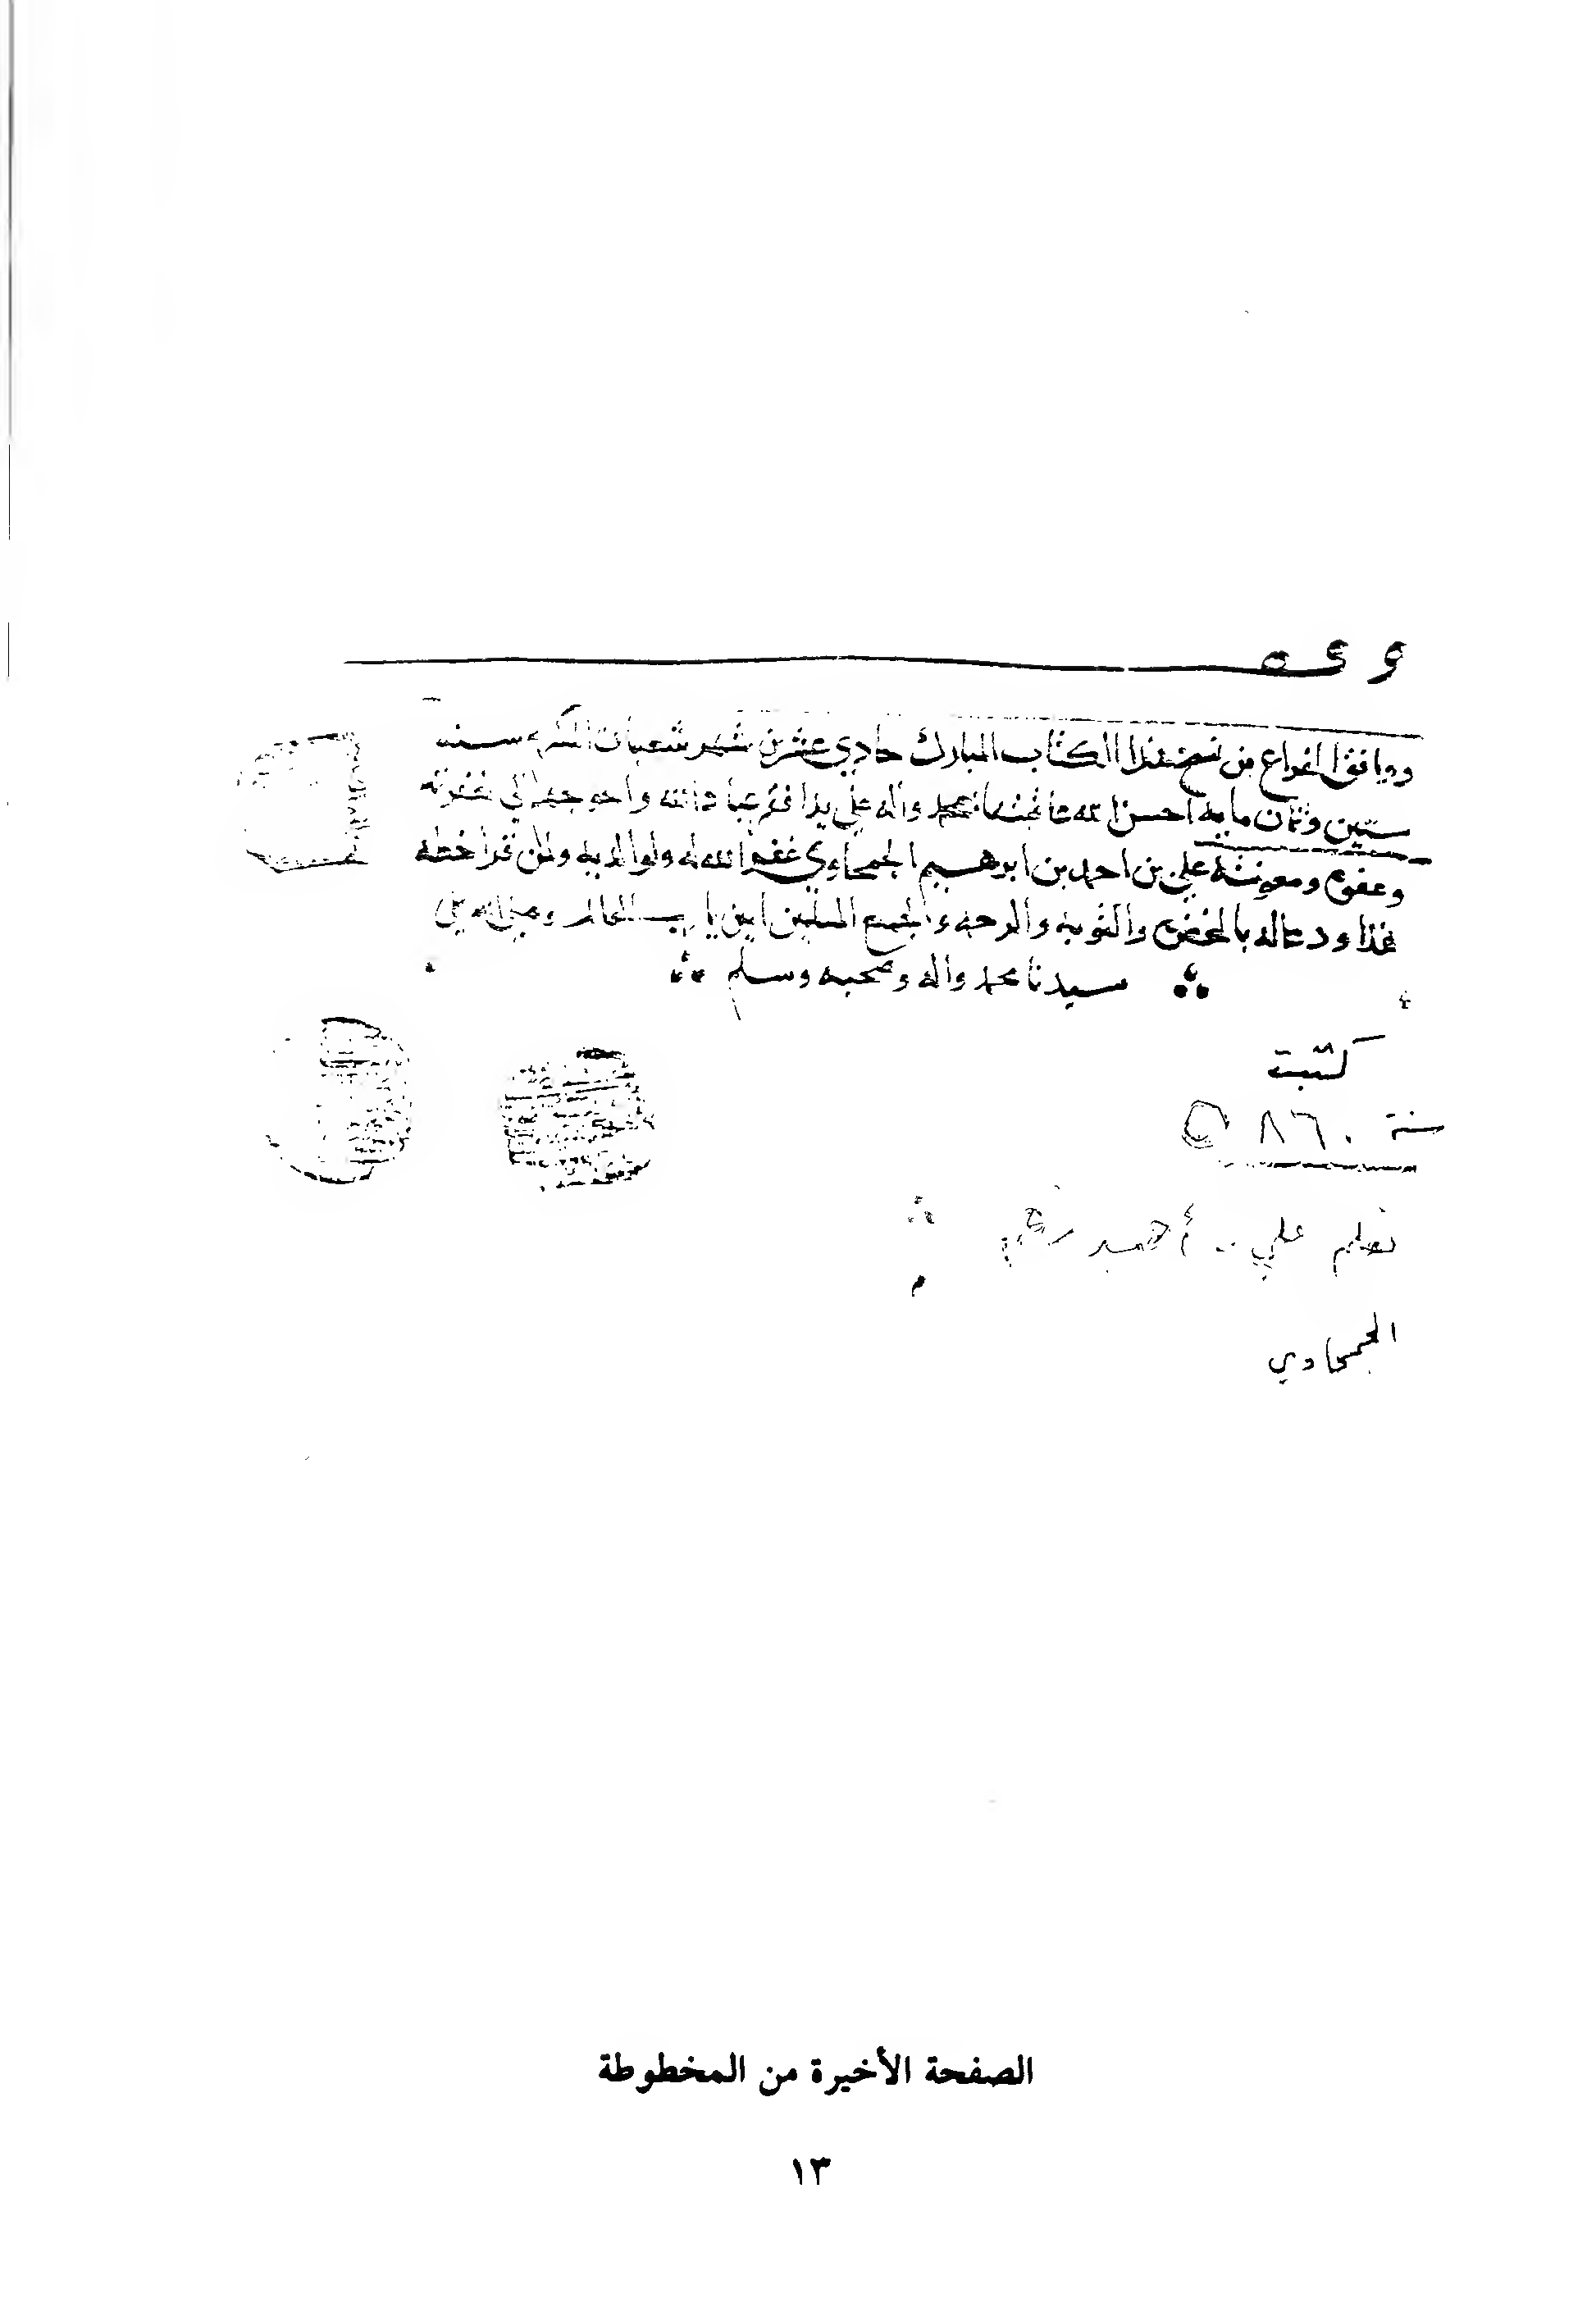 ووافق الفراغ من نسخ هذا الكتاب المبارك حادي عشرين شهر شعبان المكرم سنة
ستين وثمان مايه احسن الله عاقبتها بمحمد واله على يد افقر عباد الله واحوجهم الي مغفرته
وعفوه ومعونته علي بن احمد بن ابرهيم الجمحاوي غفر الله له ولوالديه ولمن قرا خطه
هذا ودعا له بالمغفره والتوبه والرحمه ولجميع المسلمين امين يا رب العالم وصلى الله على
سيدنا محمد واله وصحبه وسلم
كتبت
سنة ٨٦٠ ه
علي أحمد
الجمحاوي
الصفحة الأخيرة من المخطوطة
١٣